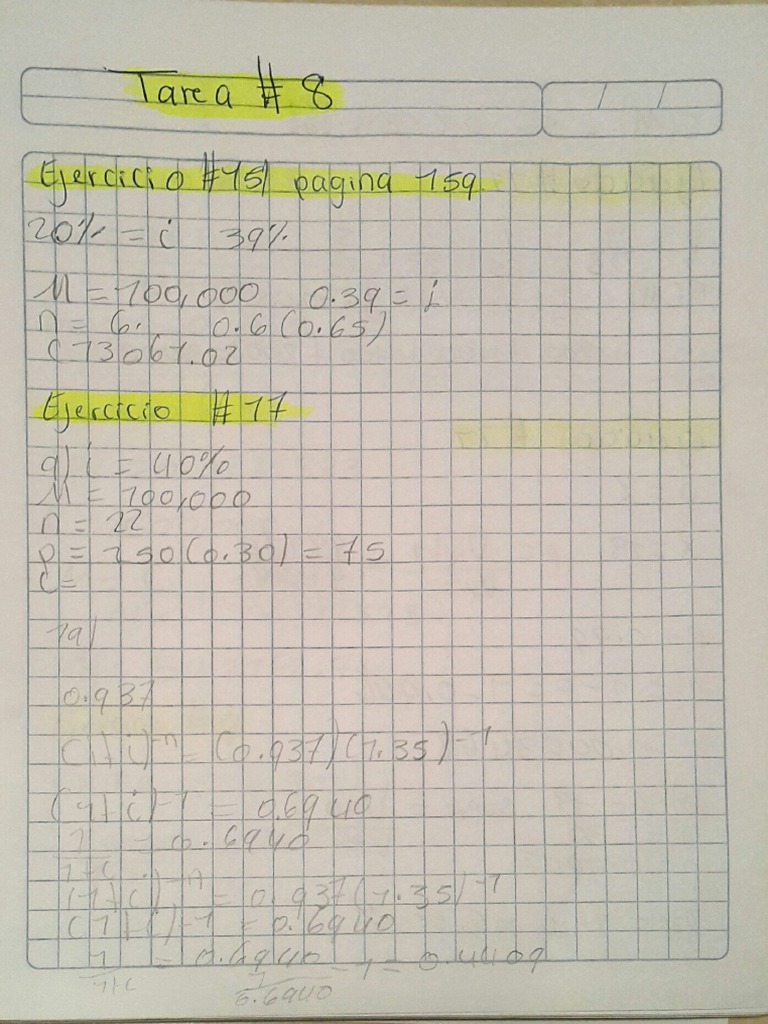 Tarea # 8
Ejercicio #15) pagina 159
20% = i 39%
M = 100,000 0.39 = i
n = 6. 0.6 (0.65)
C 13061.02
Ejercicio # 17
a) i = 40%
M = 100,000
n = 22
P = 250(0.30) = 75
C=
19)
0.937
C(1+i)-n = (0.937)(1.35)-1
(1+i)-1 = 0.6940
1 = 0.6940
1+i
(1+i)-n = 0.937(1.35)-1
(1+i)-1 = 0.6940
1 = 0.6940 1 -1 = 0.4409
1+i 0.6940